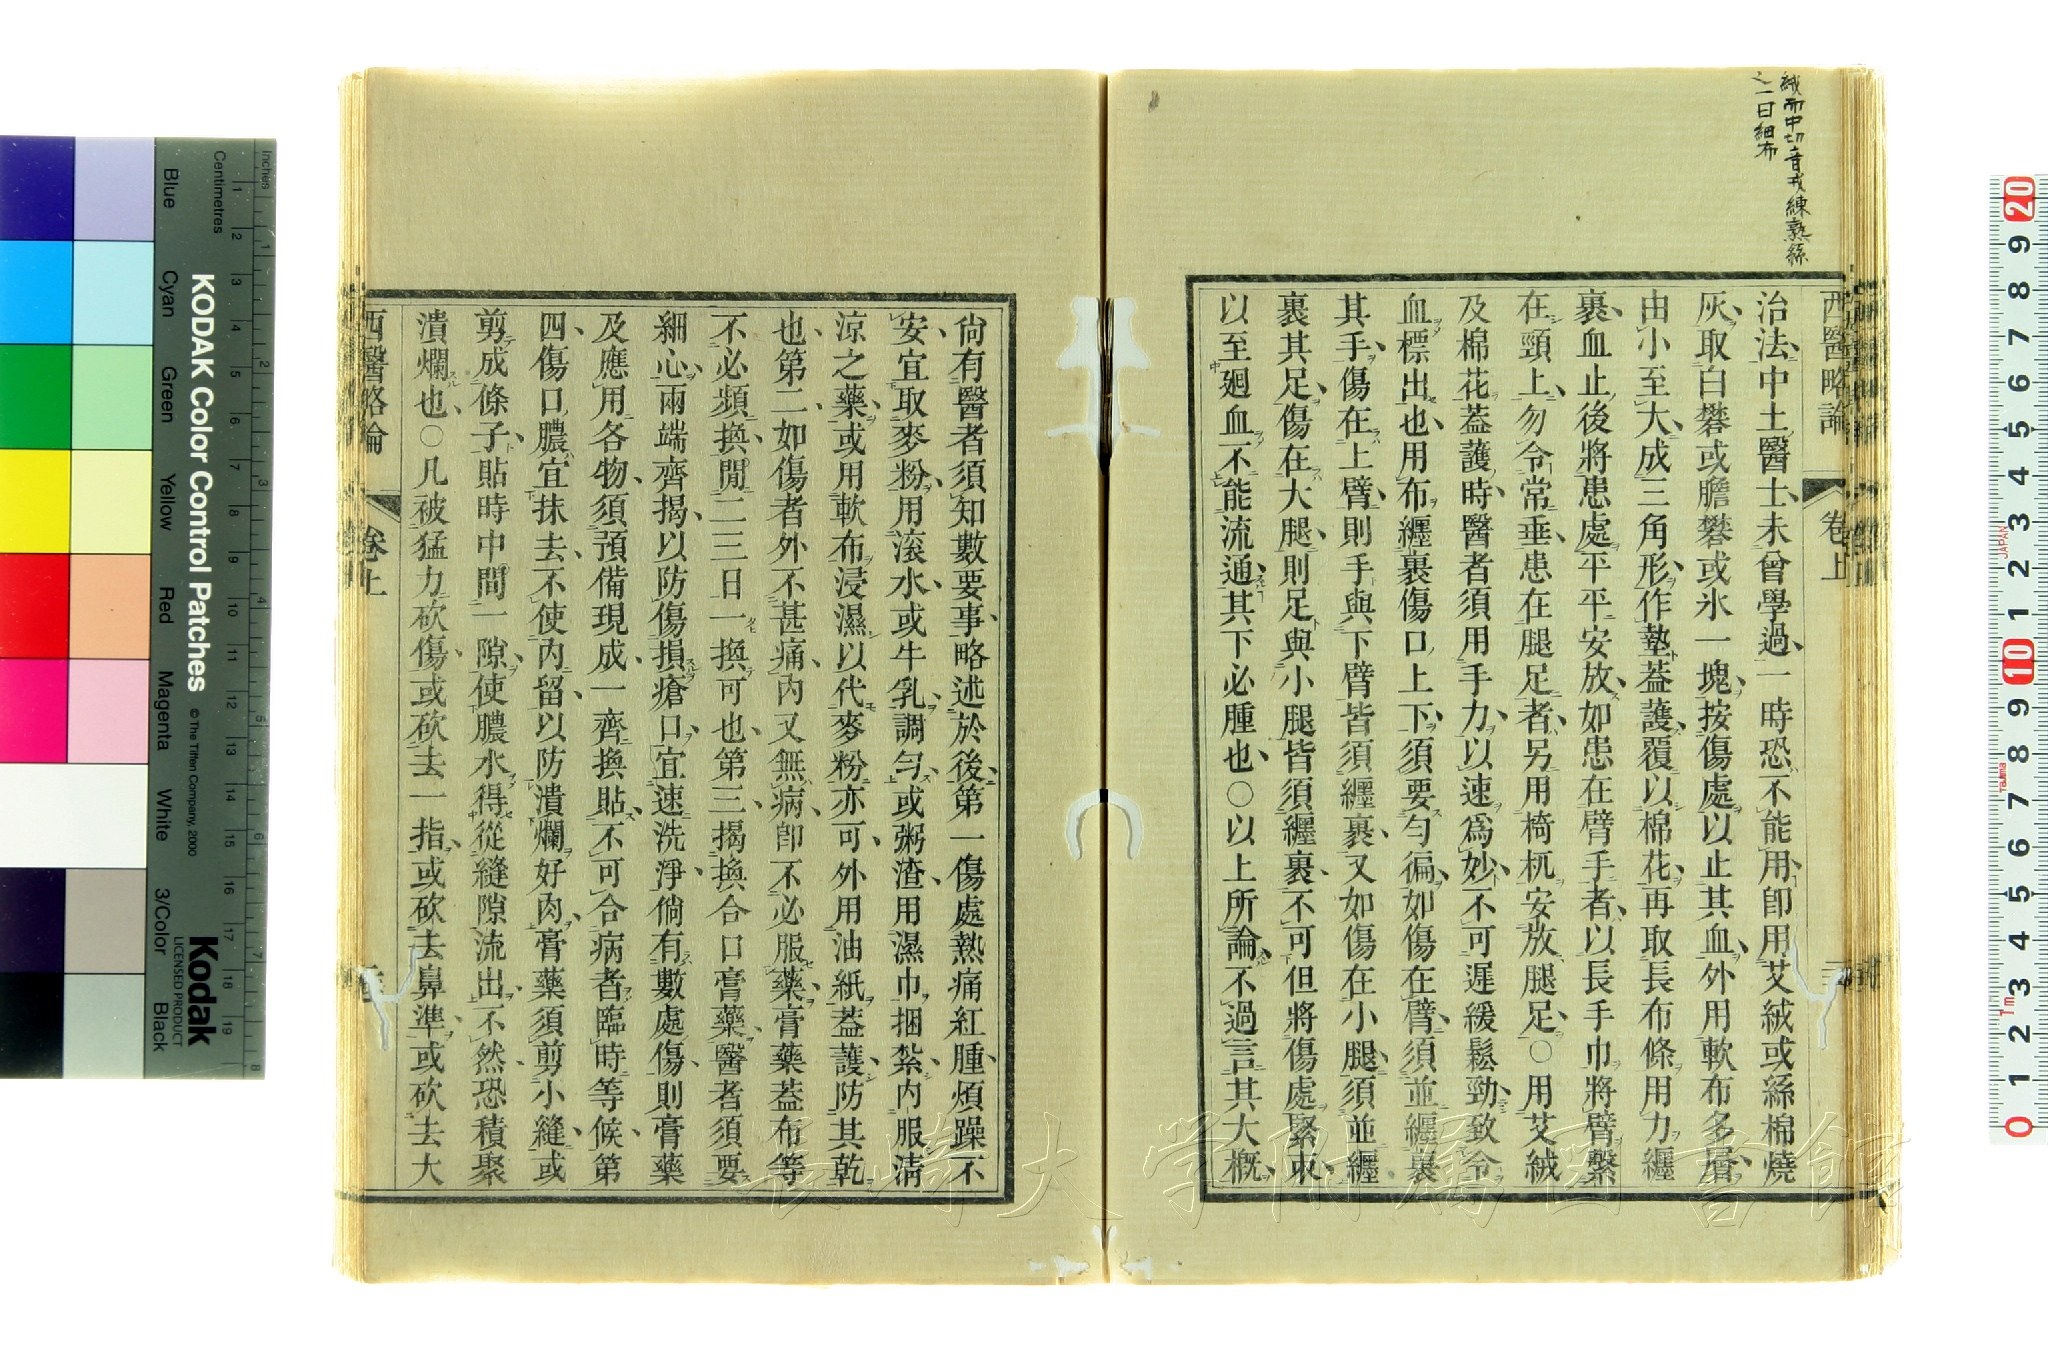 絨而中切音戎練熟絲
也一曰細布
西醫略論
卷上
治法中土醫士未曾學過一時恐不能用卽用艾絨或絲棉燒
灰取白礬或膽礬或氷一塊按傷處以止其血外用軟布多層
由小至大成三角形作墊葢護覆以棉花再取長布條用力纒
裹血止後將患處平平安放如患在臂手者以長手巾將臂繫
在頸上勿令常垂患在腿足者另用椅杌安放腿足○用艾絨
及棉花葢護時醫者須用手力以速爲妙不可遲緩鬆勁致令
血標出也用布纒裹傷口上下須要勻徧如傷在臂須並纒裹
其手傷在上臂則手與下臂皆須纒裹又如傷在小腿須並纒
裹其足傷在大腿則足與小腿皆須纒裹不可但將傷處緊束
以至廻血不能流通其下必腫也○以上所論不過言其大槪
尙有醫者須知數要事略述於後第一傷處熱痛紅腫煩躁不
安宜取麥粉用滚水或牛乳調勻或粥渣用濕巾捆紮內服淸
凉之藥或用軟布浸濕以代麥粉亦可外用油紙葢護防其乾
也第二如傷者外不甚痛內又無病卽不必服藥膏藥葢布等
不必頻換閒二三日一換可也第三揭換合口膏藥醫者須要
細心兩端齊揭以防傷損瘡口宜速洗淨倘有數處傷則膏藥
及應用各物須預備現成一齊換貼不可合病者臨時等候第
四傷口膿宜抹去不使內留以防潰爛好肉膏藥須剪小縫或
剪成條子貼時中間一隙使膿水得從縫隙流出不然恐積聚
潰爛也○凡被猛力砍傷或砍去一指或砍去鼻準或砍去大
西醫略論
卷上
長崎大学附属図書館
KODAK Color Control Patches
© The Tiffen Company, 2000
Kodak
LICENSED PRODUCT
Inches
Centimetres
Blue
Cyan
Green
Yellow
Red
Magenta
White
3/Color
Black
1 2 3 4 5 6 7 8 9 10 11 12 13 14 15 16 17 18 19
1 2 3 4 5 6 7 8
20 9 8 7 6 5 4 3 2 1 10 9 8 7 6 5 4 3 2 1 0
JAPAN